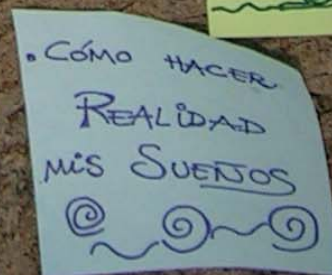 . CÓMO HACER
REALIDAD
MIS SUEÑOS